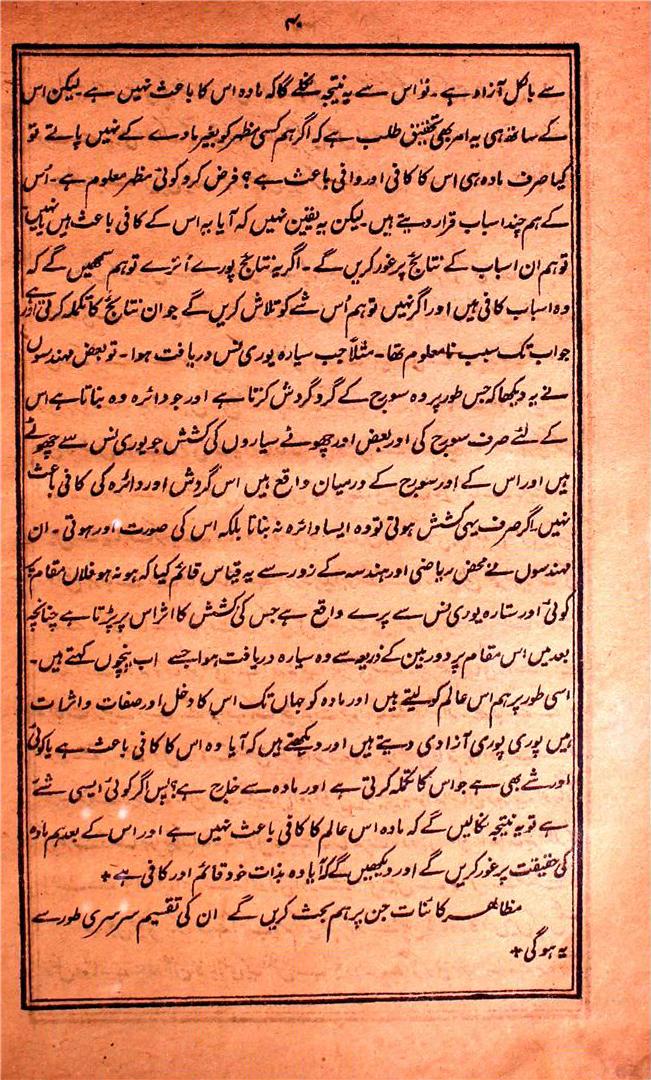 ۴۰
سے بالکل آزاد ہے۔ تو اس سے یہ نتیجہ نکلے گا کہ مادہ اس کا باعث نہیں ہے۔ لیکن اس
کے ساتھ ہی یہ امر بھی تحقیق طلب ہے کہ اگر ہم کسی مظہر کو بغیر مادے کے نہیں پاتے تو
کیا صرف مادہ ہی اس کا کافی اور وافی باعث ہے؟ فرض کرو کوئی مظہر معلوم ہے۔ اُس
کے ہم چند اسباب قرار دیتے ہیں۔ لیکن یہ یقین نہیں کہ آیا یہ اس کے کافی باعث ہیں یا نہیں
تو ہم ان اسباب کے نتائج پر غور کریں گے۔ اگر یہ نتائج پورے اُترے تو ہم سمجھیں گے کہ
وہ اسباب کافی ہیں اور اگر نہیں تو ہم اُس شے کو تلاش کریں گے جو ان نتائج کا تکملہ کرتی ہے اور
جو اب تک سبب نامعلوم تھا۔ مثلاً جب سیارہ یوری نس دریافت ہوا۔ تو بعض مہندسوں
نے یہ دیکھا کہ جس طور پر وہ سورج کے گرد گردش کرتا ہے اور جو دائرہ وہ بناتا ہے اس
کے لئے صرف سورج کی اور بعض اور چھوٹے سیاروں کی کشش جو یوری نس سے چھوٹے
ہیں اور اس کے اور سورج کے درمیان واقع ہیں اس گردش اور دائرہ کی کافی باعث
نہیں۔ اگر صرف یہی کشش ہوتی تو وہ ایسا دائرہ نہ بناتا بلکہ اس کی صورت اور ہوتی۔ ان
مہندسوں نے محض ریاضی اور ہندسہ کے زور سے یہ قیاس قائم کیا کہ ہو نہ ہو فلاں مقام پر
کوئی اور ستارہ یوری نس سے پرے واقع ہے جس کی کشش کا اثر اس پر پڑتا ہے چنانچہ
بعد میں اس مقام پر دوربین کے ذریعہ سے وہ سیارہ دریافت ہوا جسے اب نپچوں کہتے ہیں۔
اسی طور پر ہم اس عالم کو لیتے ہیں اور مادہ کو جہاں تک اس کا دخل اور صفات و اثرات
ہیں پوری پوری آزادی دیتے ہیں اور دیکھتے ہیں کہ آیا وہ اس کا کافی باعث ہے یا کوئی
اور شے بھی ہے جو اس کا تکملہ کرتی ہے اور مادہ سے خارج ہے؟ پس اگر کوئی ایسی شے
ہے تو یہ نتیجہ نکالیں گے کہ مادہ اس عالم کا کافی باعث نہیں ہے اور اس کے بعد ہم مادہ
کی حقیقت پر غور کریں گے اور دیکھیں گے کہ آیا وہ بذات خود قائم اور کافی ہے +
مظاہر کائنات جن پر ہم بحث کریں گے ان کی تقسیم سرسری طور سے
یہ ہوگی +